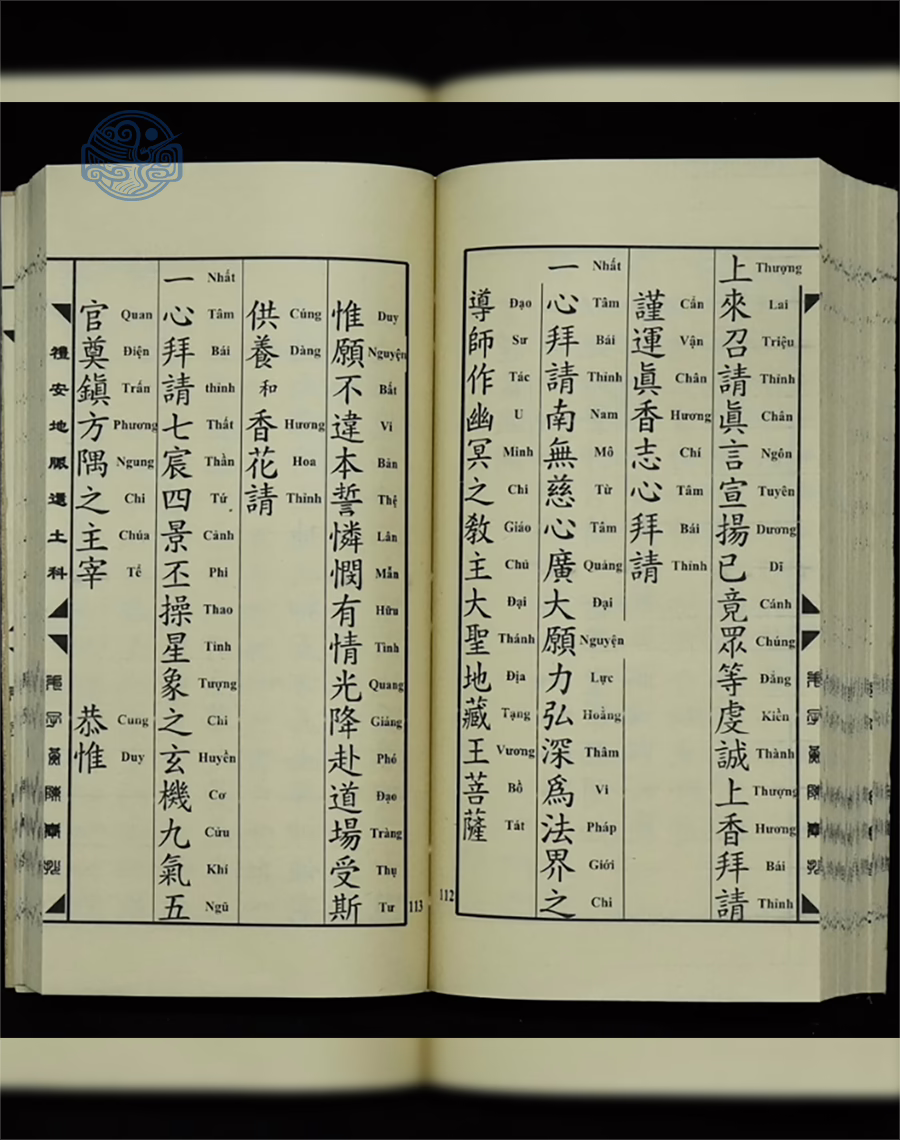 上來召請眞言宣揚已竟眾等虔誠上香拜請
Thượng Lai Triệu Thỉnh Chân Ngôn Tuyên Dương Dĩ Cánh Chúng Đẳng Kiền Thành Thượng Hương Bái Thỉnh
謹運眞香志心拜請
Cẩn Vận Chân Hương Chí Tâm Bái Thỉnh
一心拜請南無慈心廣大願力弘深爲法界之
Nhất Tâm Bái Thỉnh Nam Mô Từ Tâm Quảng Đại Nguyện Lực Hoằng Thâm Vi Pháp Giới Chi
導師作幽冥之教主大聖地藏王菩薩
Đạo Sư Tác U Minh Chi Giáo Chủ Đại Thánh Địa Tạng Vương Bồ Tát
112
惟願不違本誓憐憫有情光降赴道場受斯
Duy Nguyện Bất Vi Bản Thệ Lân Mẫn Hữu Tình Quang Giáng Phó Đạo Tràng Thụ Tư
供養和香花請
Cúng Dàng Hương Hoa Thỉnh
一心拜請七宸四景丕操星象之玄機九氣五
Nhất Tâm Bái thỉnh Thất Thần Tứ Cảnh Phi Thao Tinh Tượng Chi Huyền Cơ Cửu Khí Ngũ
官奠鎭方隅之主宰 恭惟
Quan Điện Trấn Phương Ngung Chi Chúa Tể Cung Duy
禮安地脈還土科
113